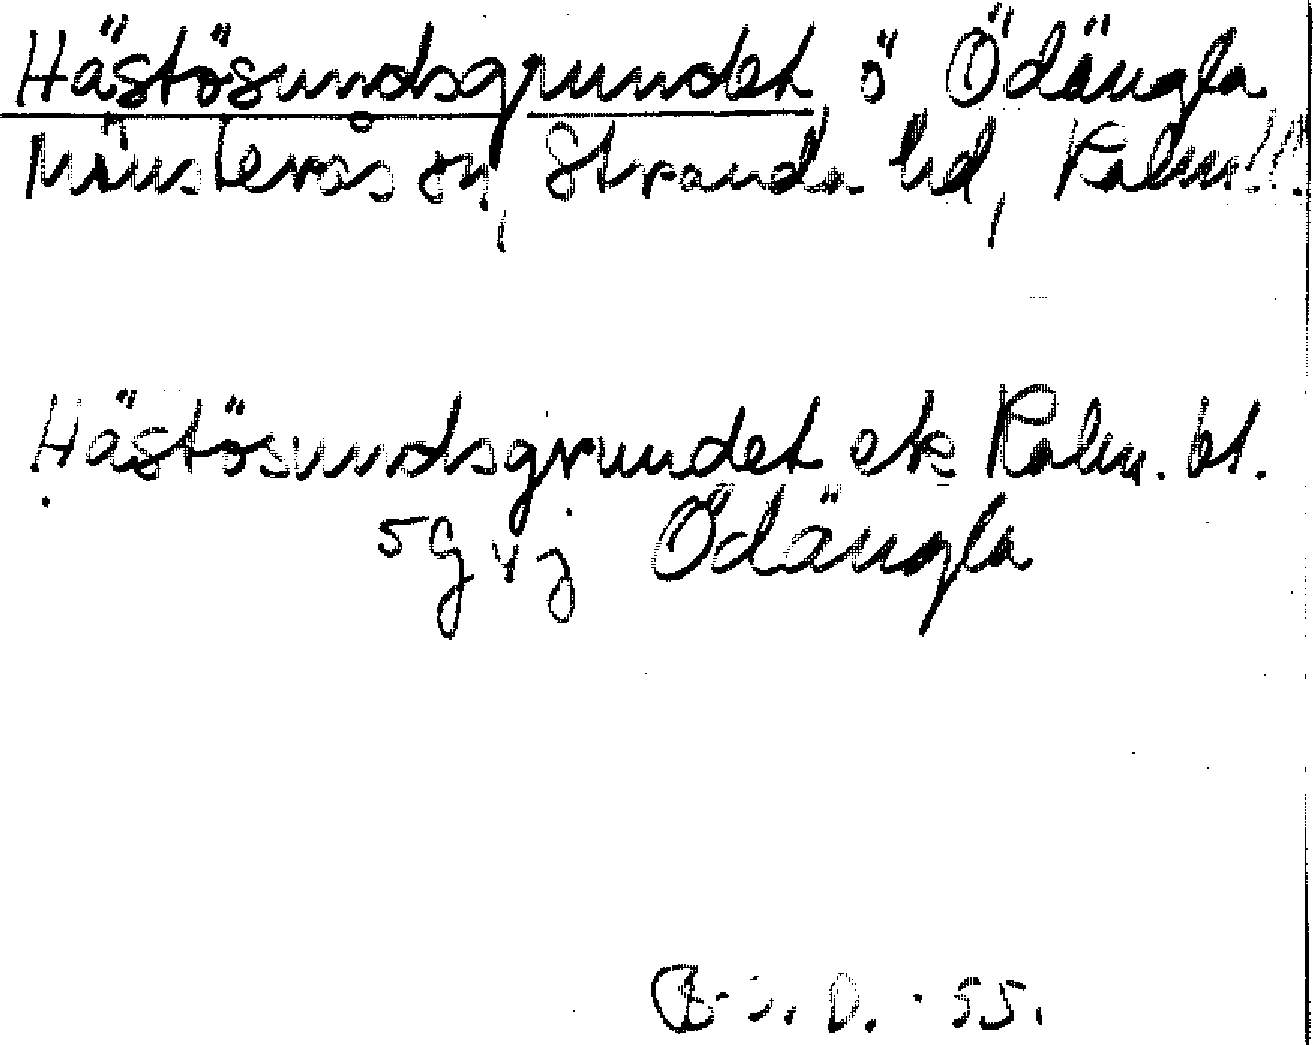 Hästösundsgrundet ö Ödängla
Mönsterås sn, Stranda hd, Kalm. l.
Hästösundsgrundet ek Kalm. bl.
5G 4j Ödängla
D. -55.